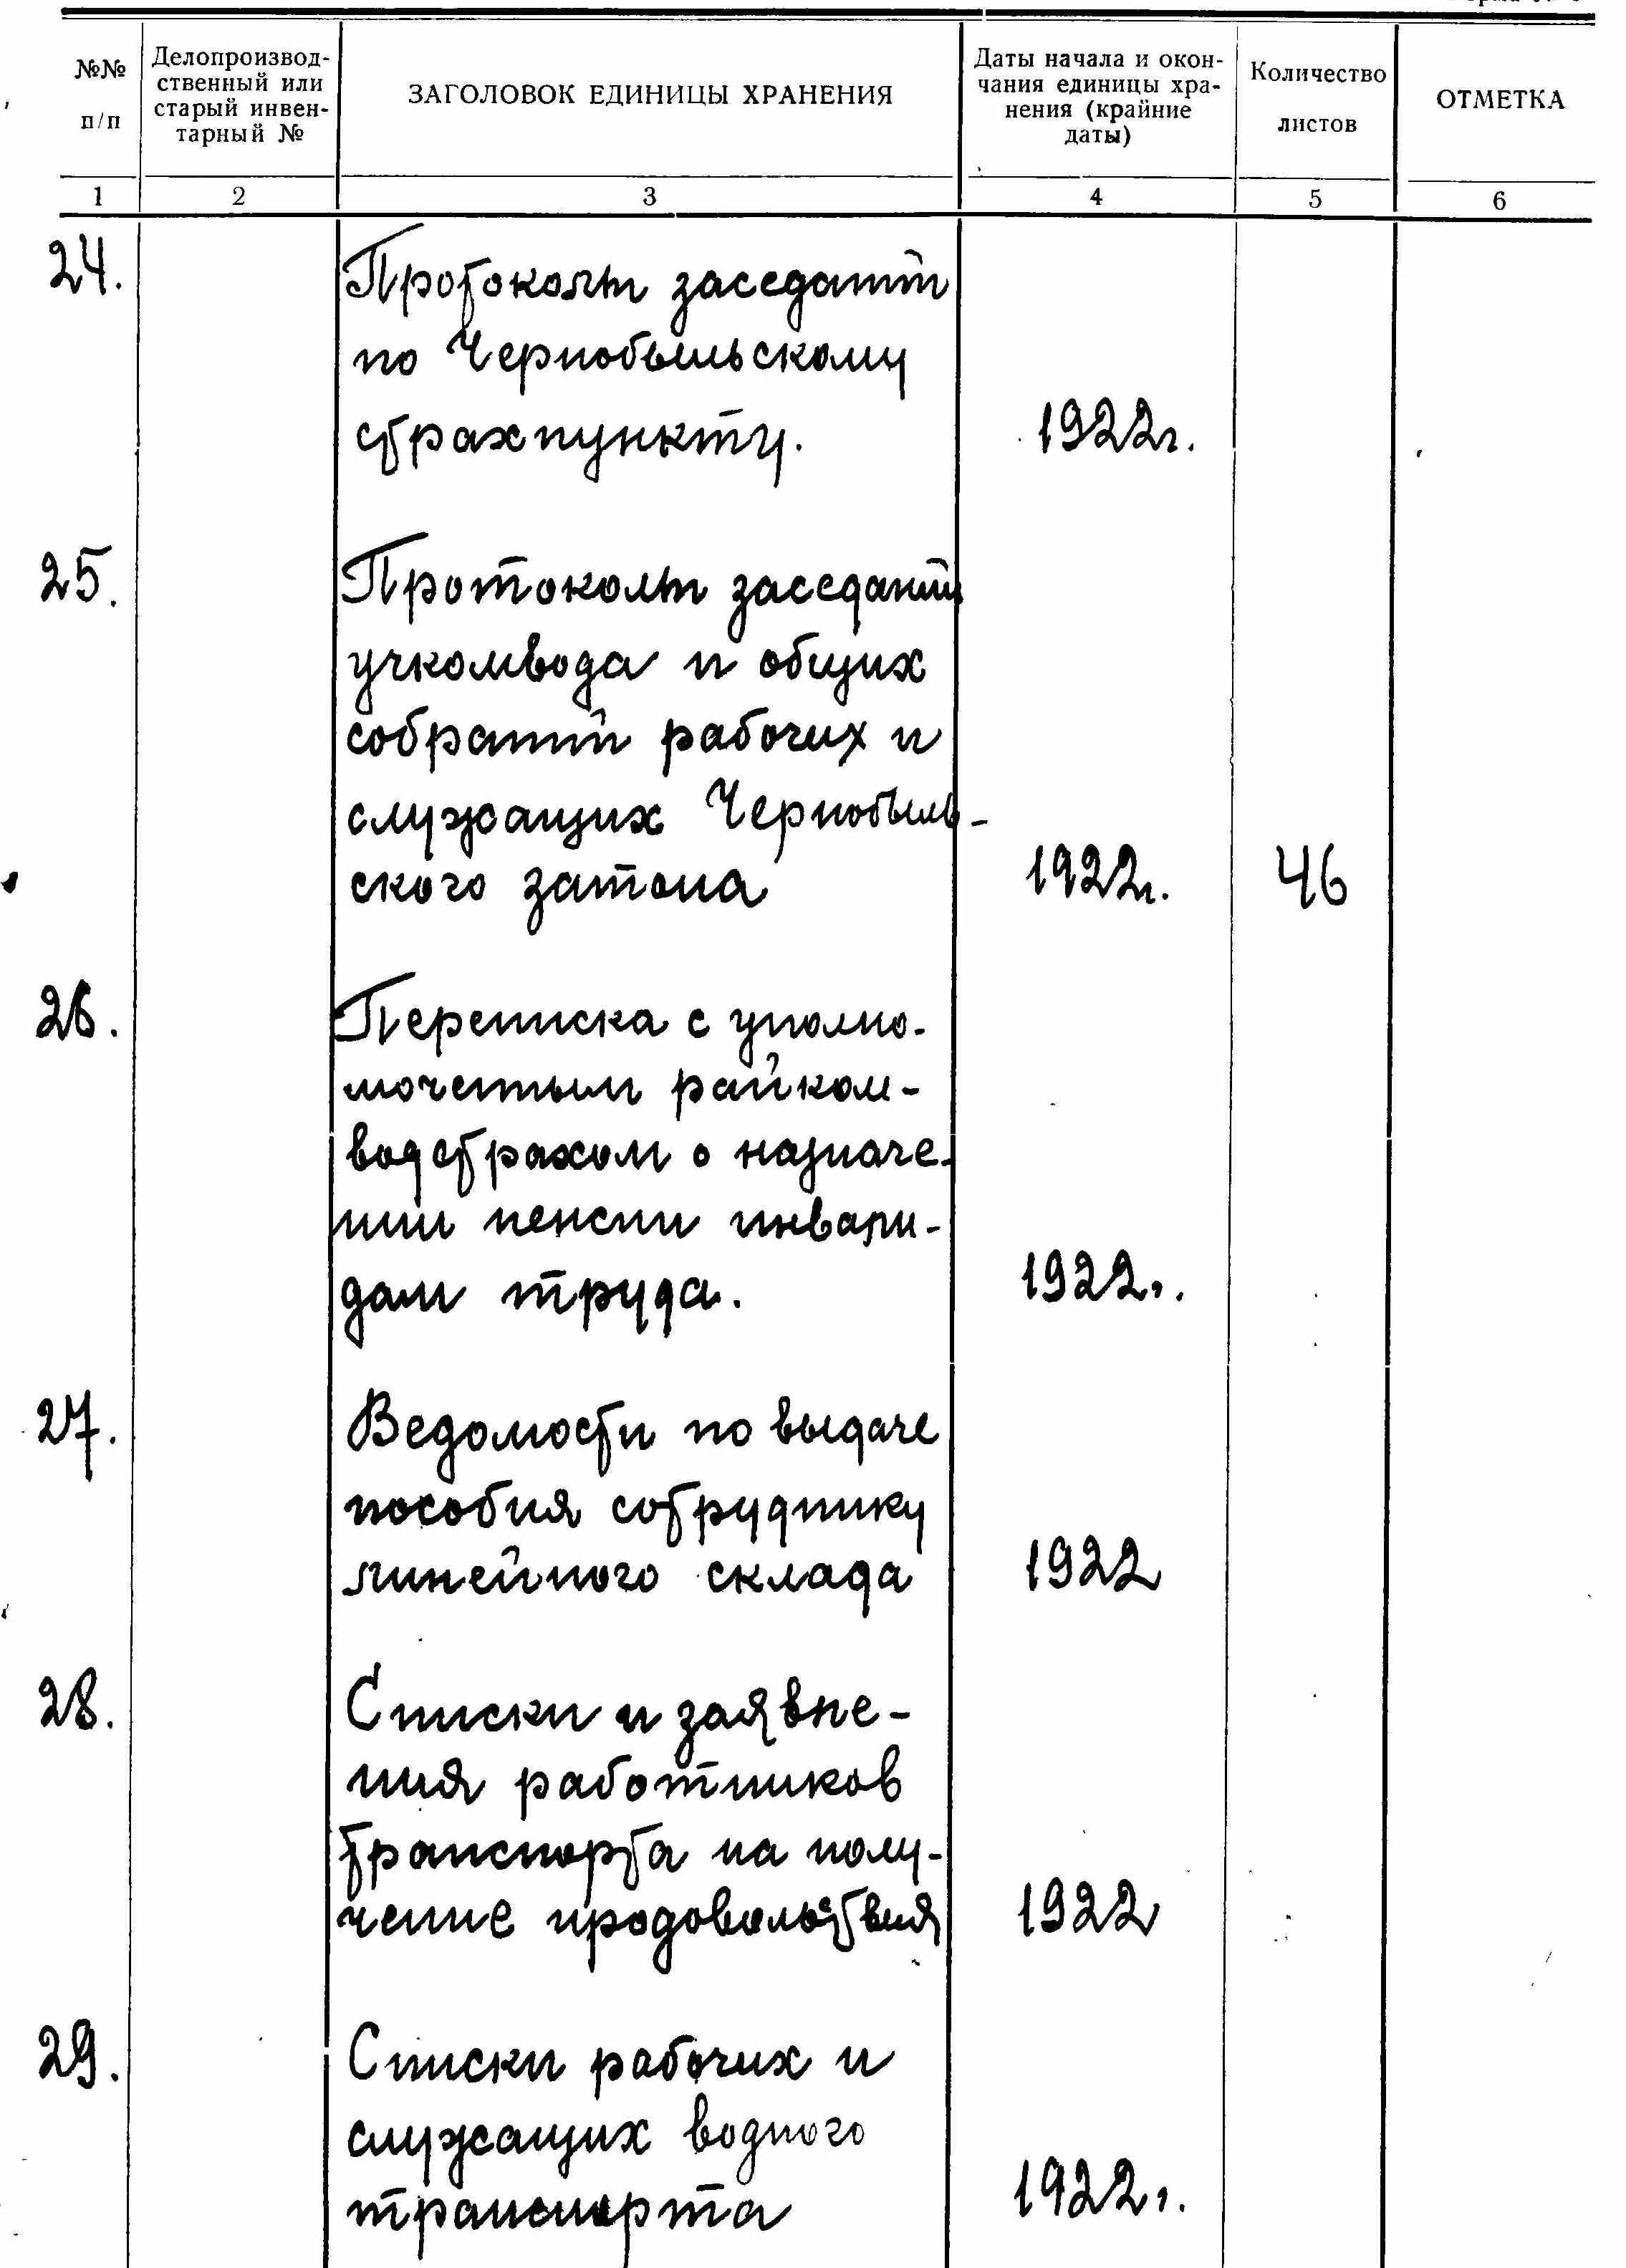 №№ п/п
Делопроизвод-
ственный или
старый инвен-
тарный №
ЗАГОЛОВОК ЕДИНИЦЫ ХРАНЕНИЯ
Даты начала и окон-
чания единицы хра-
нения (крайние
даты)
Количество
листов
ОТМЕТКА
1 2 3 4 5 6
24. Протоколы заседаний
по Чернобыльскому
страхпункту. 1922г.
25. Протоколы заседаний
учкомвода и общих
собраний рабочих и
служащих Чернобыль-
ского затона 1922г. 46
26. Переписка с уполно-
моченным райком-
водстрахом о назначе-
нии пенсии инвали-
дам труда. 1922г.
27. Ведомости по выдаче
пособия сотруднику
линейного склада 1922
28. Списки и заявле-
ния работников
транспорта на полу-
чение продовольствия 1922
29. Списки рабочих и
служащих водного
транспорта 1922г.